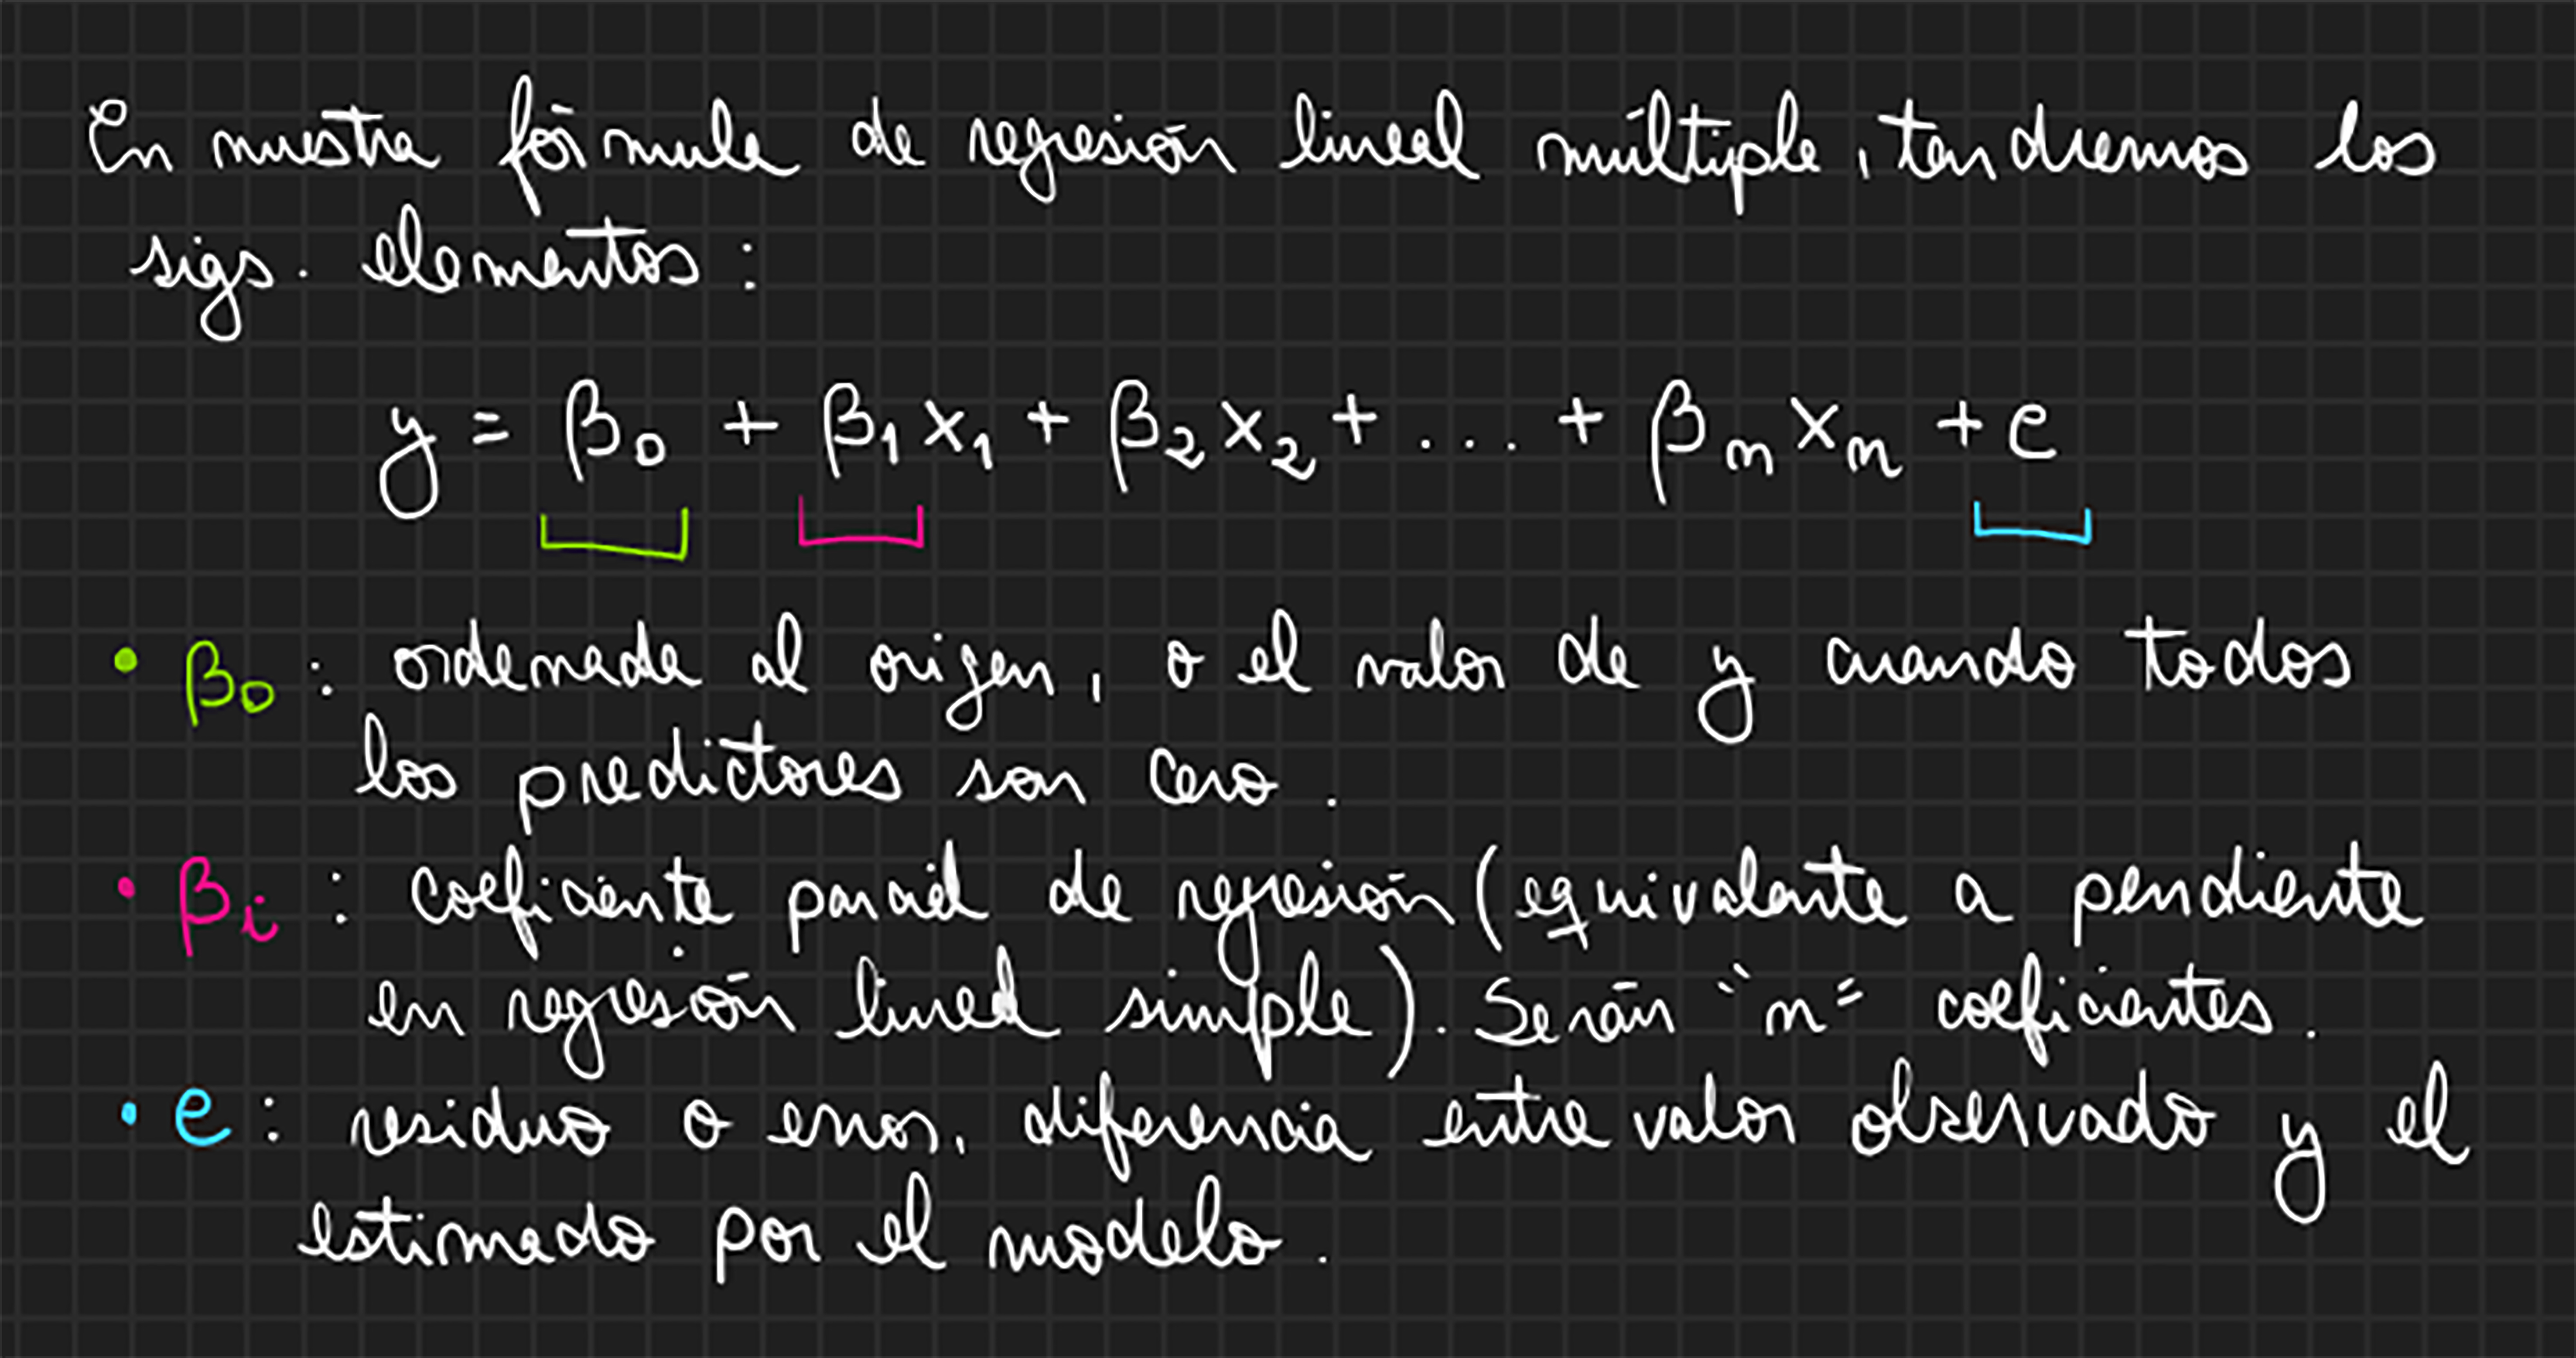 En nuestra fórmula de regresión lineal múltiple, tendremos los
sigs. elementos:
y = β₀ + β₁x₁ + β₂x₂ + ... + βₙxₙ + e
• β₀: ordenada al origen, o el valor de y cuando todos
los predictores son cero.
• βᵢ: coeficiente parcial de regresión (equivalente a pendiente
en regresión lineal simple). Serán "n" coeficientes.
• e: residuo o error, diferencia entre valor observado y el
estimado por el modelo.